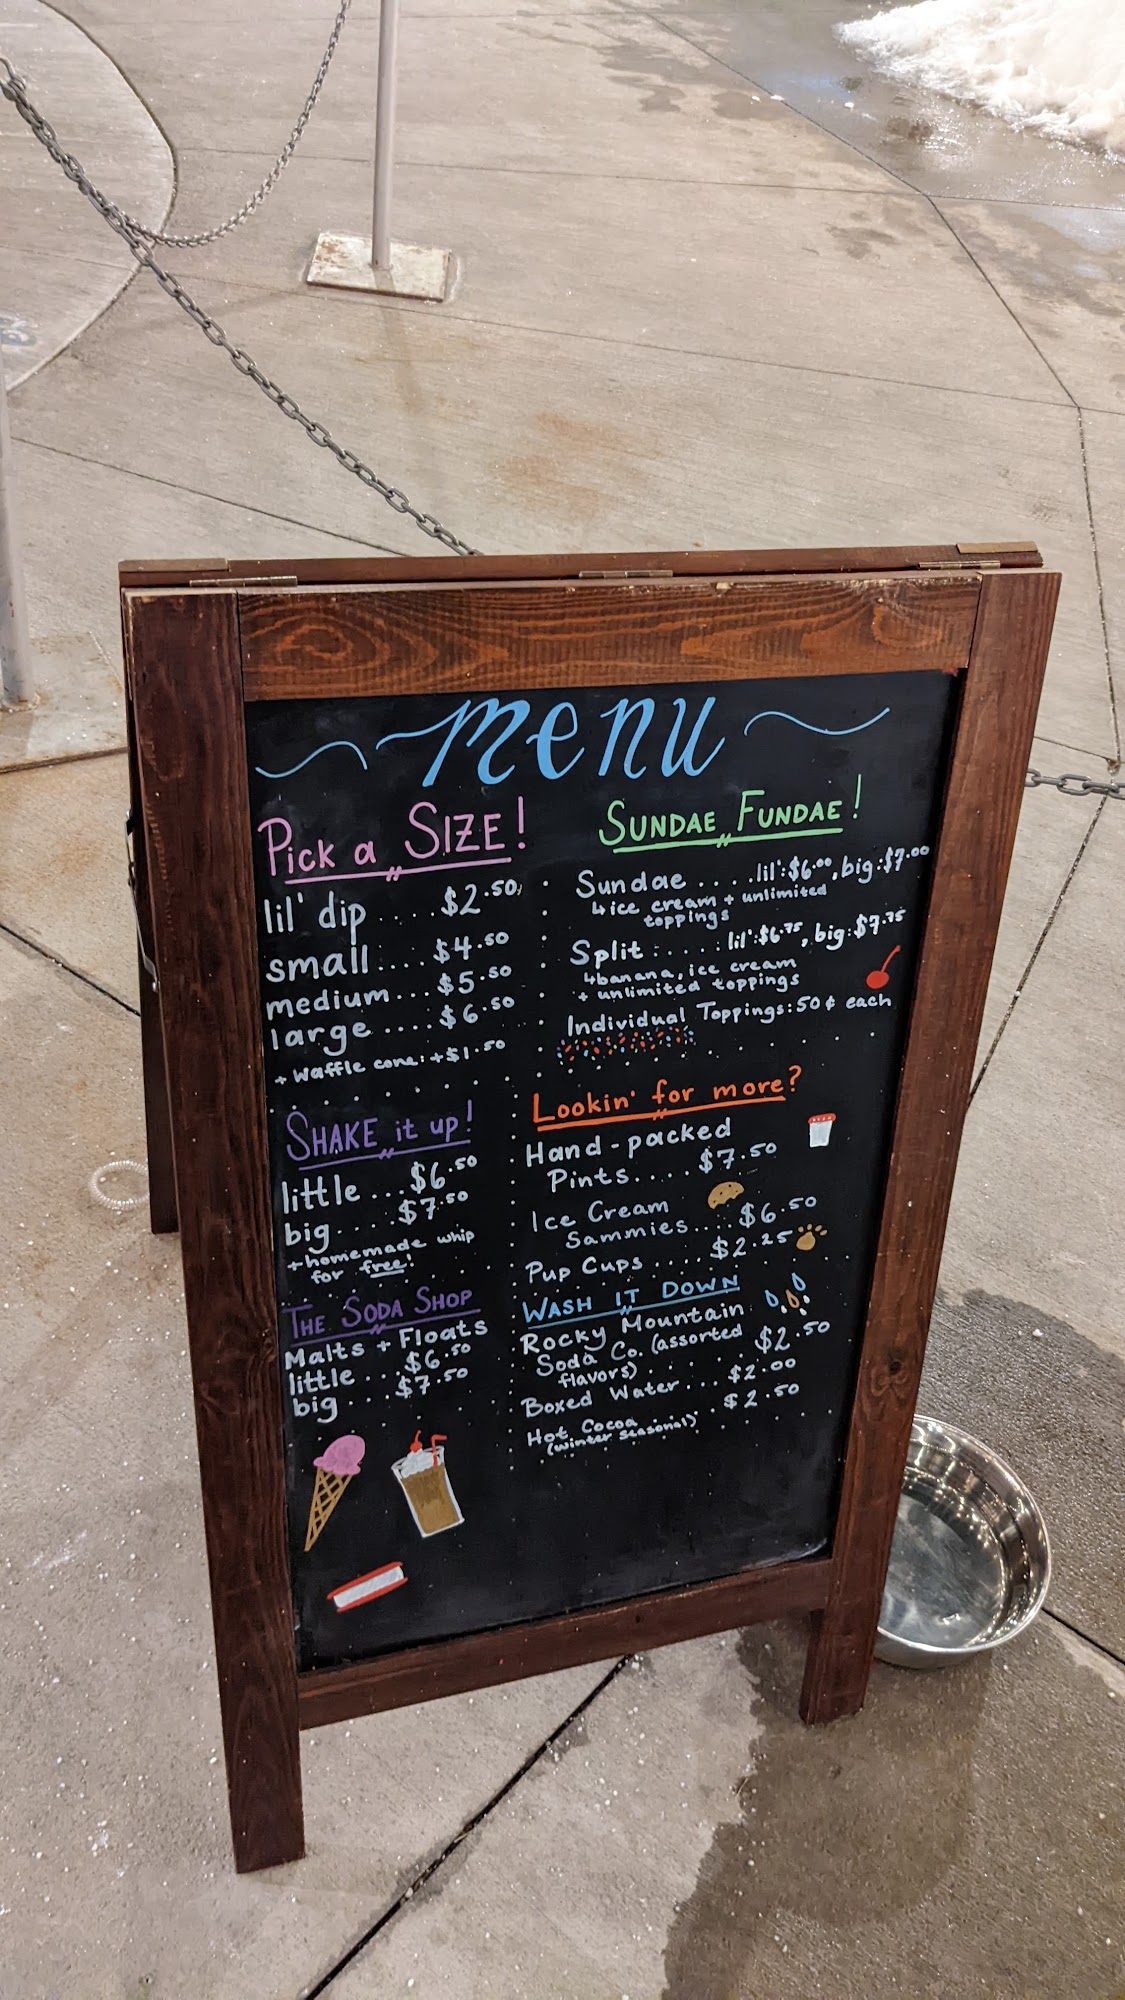 menu
Pick a SIZE!
lil' dip .... $2.50
small .... $4.50
medium ... $5.50
large .... $6.50
+ Waffle cone: +$1.50
SHAKE it up!
little ... $6.50
big .... $7.50
+ homemade whip
for free!
THE SODA SHOP
Malts + Floats
little ... $6.50
big .... $7.50
SUNDAE FUNDAE!
Sundae .... lil': $6.00, big: $7.00
↳ ice cream + unlimited
toppings
Split: .... lil': $6.75, big: $7.75
↳ banana, ice cream
+ unlimited toppings
Individual Toppings: 50¢ each
Lookin' for more?
Hand-packed
Pints.... $7.50
Ice Cream
Sammies.... $6.50
Pup Cups ..... $2.25
WASH IT DOWN
Rocky Mountain
Soda Co. (assorted
flavors) ...... $2.50
Boxed Water ... $2.00
Hot Cocoa ..... $2.50
(winter seasonal)